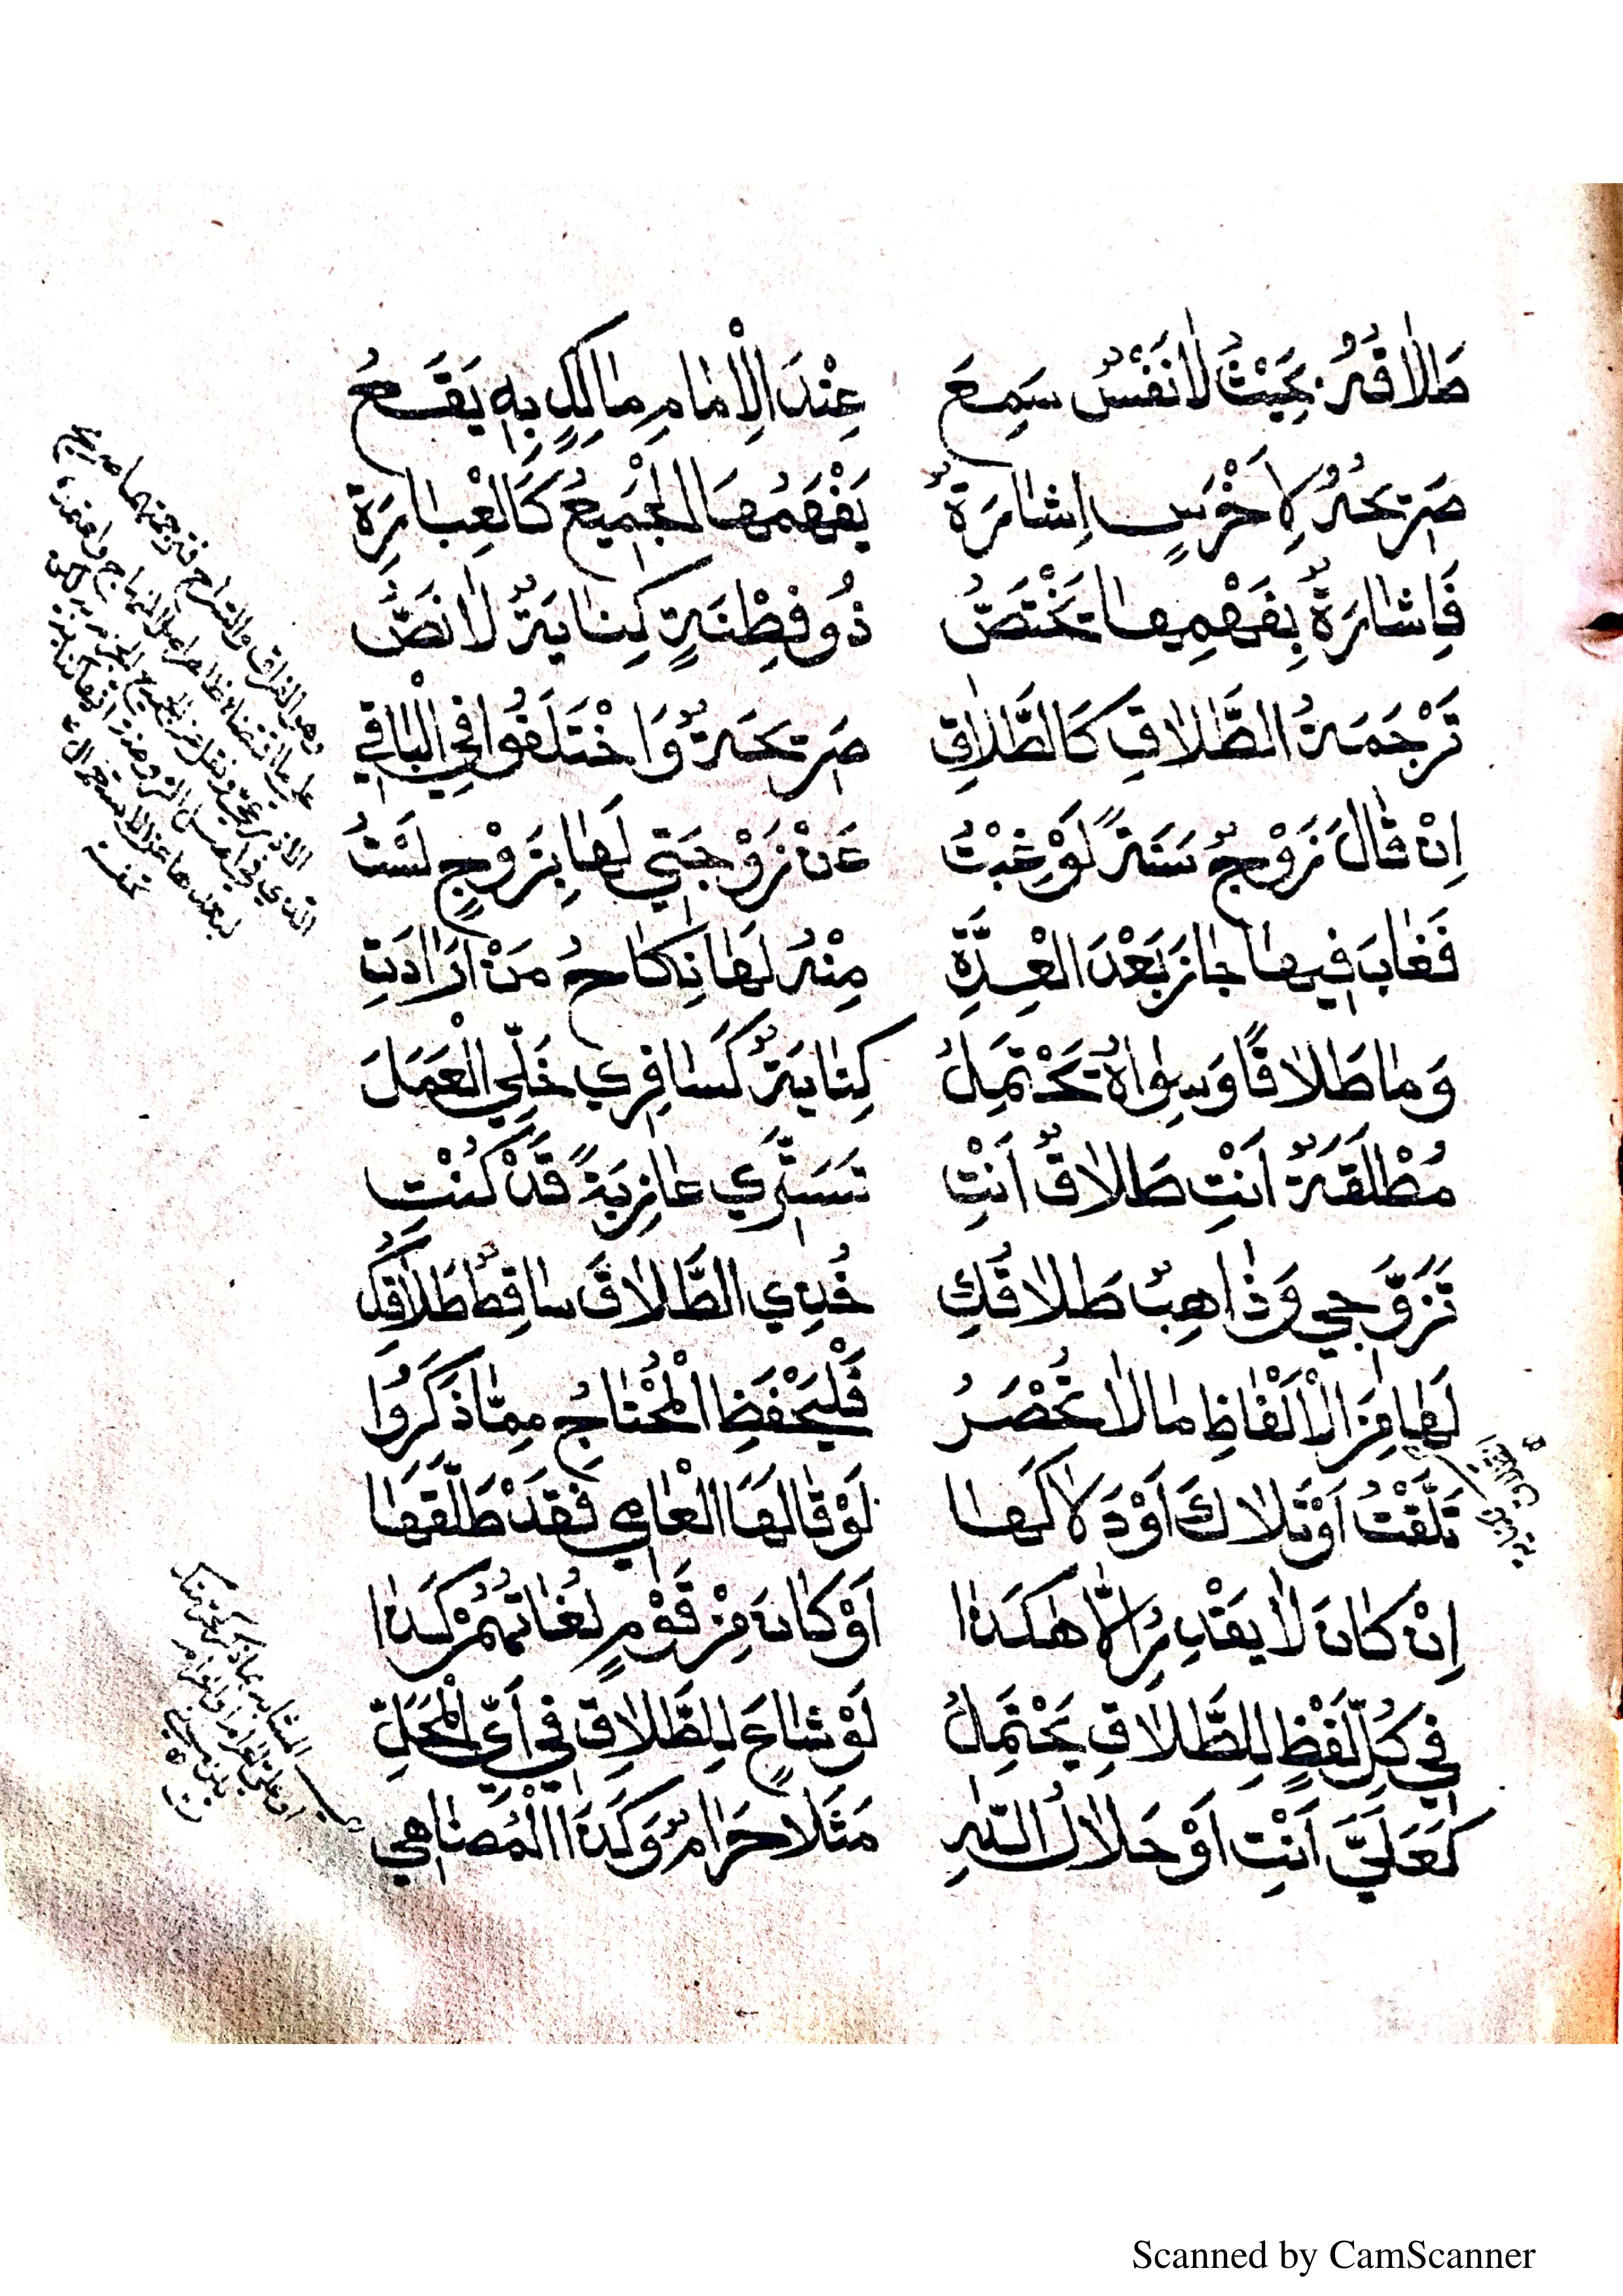 طَلَاقَهُ بِحَيْثُ لَا نَفْسٌ سَمِعَ عِنْدَ الْاِمَامِ مَالِكٍ بِهِ يَقَعُ
صَرِيْحَهُ لِاَخْرَسٍ اِشَارَةٌ يَفْهَمُهَا الْجَمِيْعُ كَالْعِبَارَةِ
فَاِشَارَةٌ بِفَهْمِهَا تَخْتَصُّ ذُو فِطْنَةٍ كِنَايَةٌ لَا نَصُّ
تَرْجَمَةُ الطَّلَاقِ كَالطَّلَاقِ صَرِيْحَةٌ وَاخْتَلَفُوا فِي الْبَاقِي
اِنْ قَالَ زَوْجٌ سَنَةً لَوْ غِبْتُ عَنْ زَوْجَتِي لَهَا بِزَوْجٍ لَسْتُ
فَغَابَ فِيهَا جَازَ بَعْدَ الْعِدَّةِ مِنْهُ لَهَا نِكَاحُ مَنْ اَرَادَتِ
وَمَا طَلَاقًا وَسِوَاهُ تَحْتَمِلُ كِنَايَةٌ كَسَافِرِي خَلِّي الْعَمَلَ
مُطْلَقَةٌ اَنْتِ طَلَاقٌ اَنْتِ تَسَتَّرِي عَازِبَةً قَدْ كُنْتِ
تَزَوَّجِي وَذَاهِبٌ طَلَاقُكِ خُذِي الطَّلَاقَ سَاقِطٌ طَلَاقُكِ
لَهَا مِنَ الْاَلْفَاظِ مَا لَا تُحْصَرُ فَلْيَحْفَظِ الْمُحْتَاجُ مِمَّا ذَكَرُوا
تَلَّقْتُ اَوْ تَلَاكَ اَوْ دَلَاكَهَا لَوْ قَالَهَا الْعَامِي فَقَدْ طَلَّقَهَا
اِنْ كَانَ لَا يَقْدِرُ اِلَّا هٰكَذَا اَوْ كَانَ مِنْ قَوْمٍ لُغَاتُهُمْ كَذَا
فِي كُلِّ لَفْظٍ لِلطَّلَاقِ يَحْتَمِلُ لَوْ شَاعَ لِلطَّلَاقِ فِي اَيِّ الْمَحَلِّ
كَعَلَيَّ اَنْتِ اَوْ حَلَالُ اللّٰهِ مَثَلًا حَرَامٌ وَكَذَا الْمُضَاهِي
وهو الفراق والسراح فترجمتهما صريح
تحفة
Scanned by CamScanner